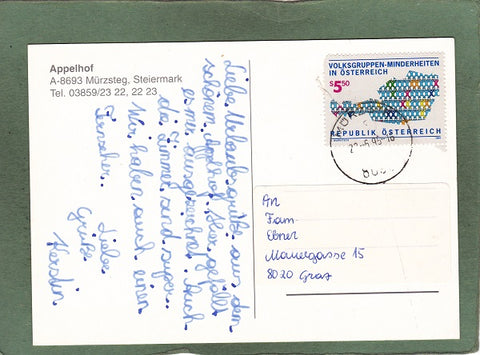 Appelhof
A-8693 Mürzsteg, Steiermark
Tel. 03859/23 22, 22 23
Liebe Urlaubsgrüße aus dem
schönen Applhof. Hier gefällt
es mir ausgezeichnet. Auch
die Zimmer sind super.
Wir haben auch einen
Fernseher.
Liebe
Grüße
Kerstin
VOLKSGRUPPEN-MINDERHEITEN
IN ÖSTERREICH
S5⁵⁰
REPUBLIK ÖSTERREICH
An
Fam.
Ebner
Mauergasse 15
8020 Graz